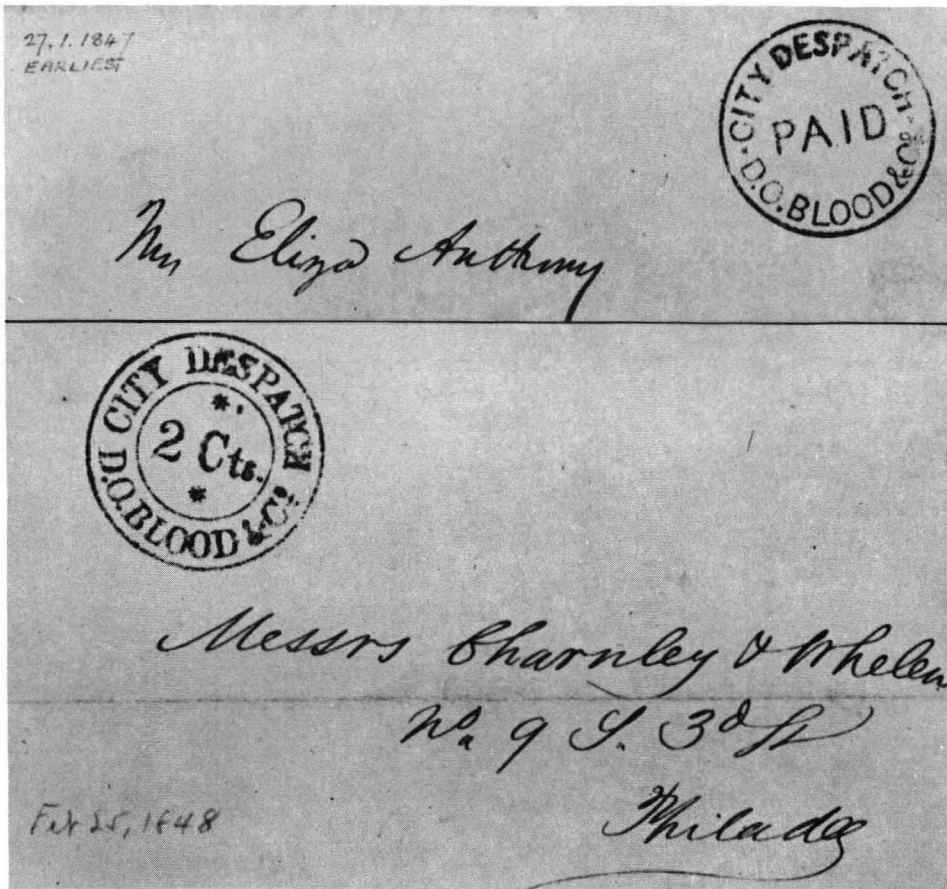 27.1.1847
EARLIEST
CITY DESPATCH
PAID
D.O. BLOOD & Co.
Eliza Anthony
CITY DESPATCH
2 Cts.
D.O. BLOOD & Co.
Messrs Charnley & Whelen
No. 9 S. 3d St
Philada
Feb 25, 1848